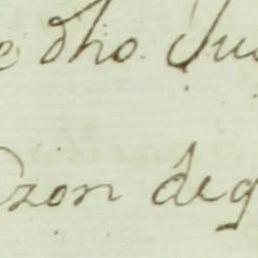 e dho. Jud
zon deg